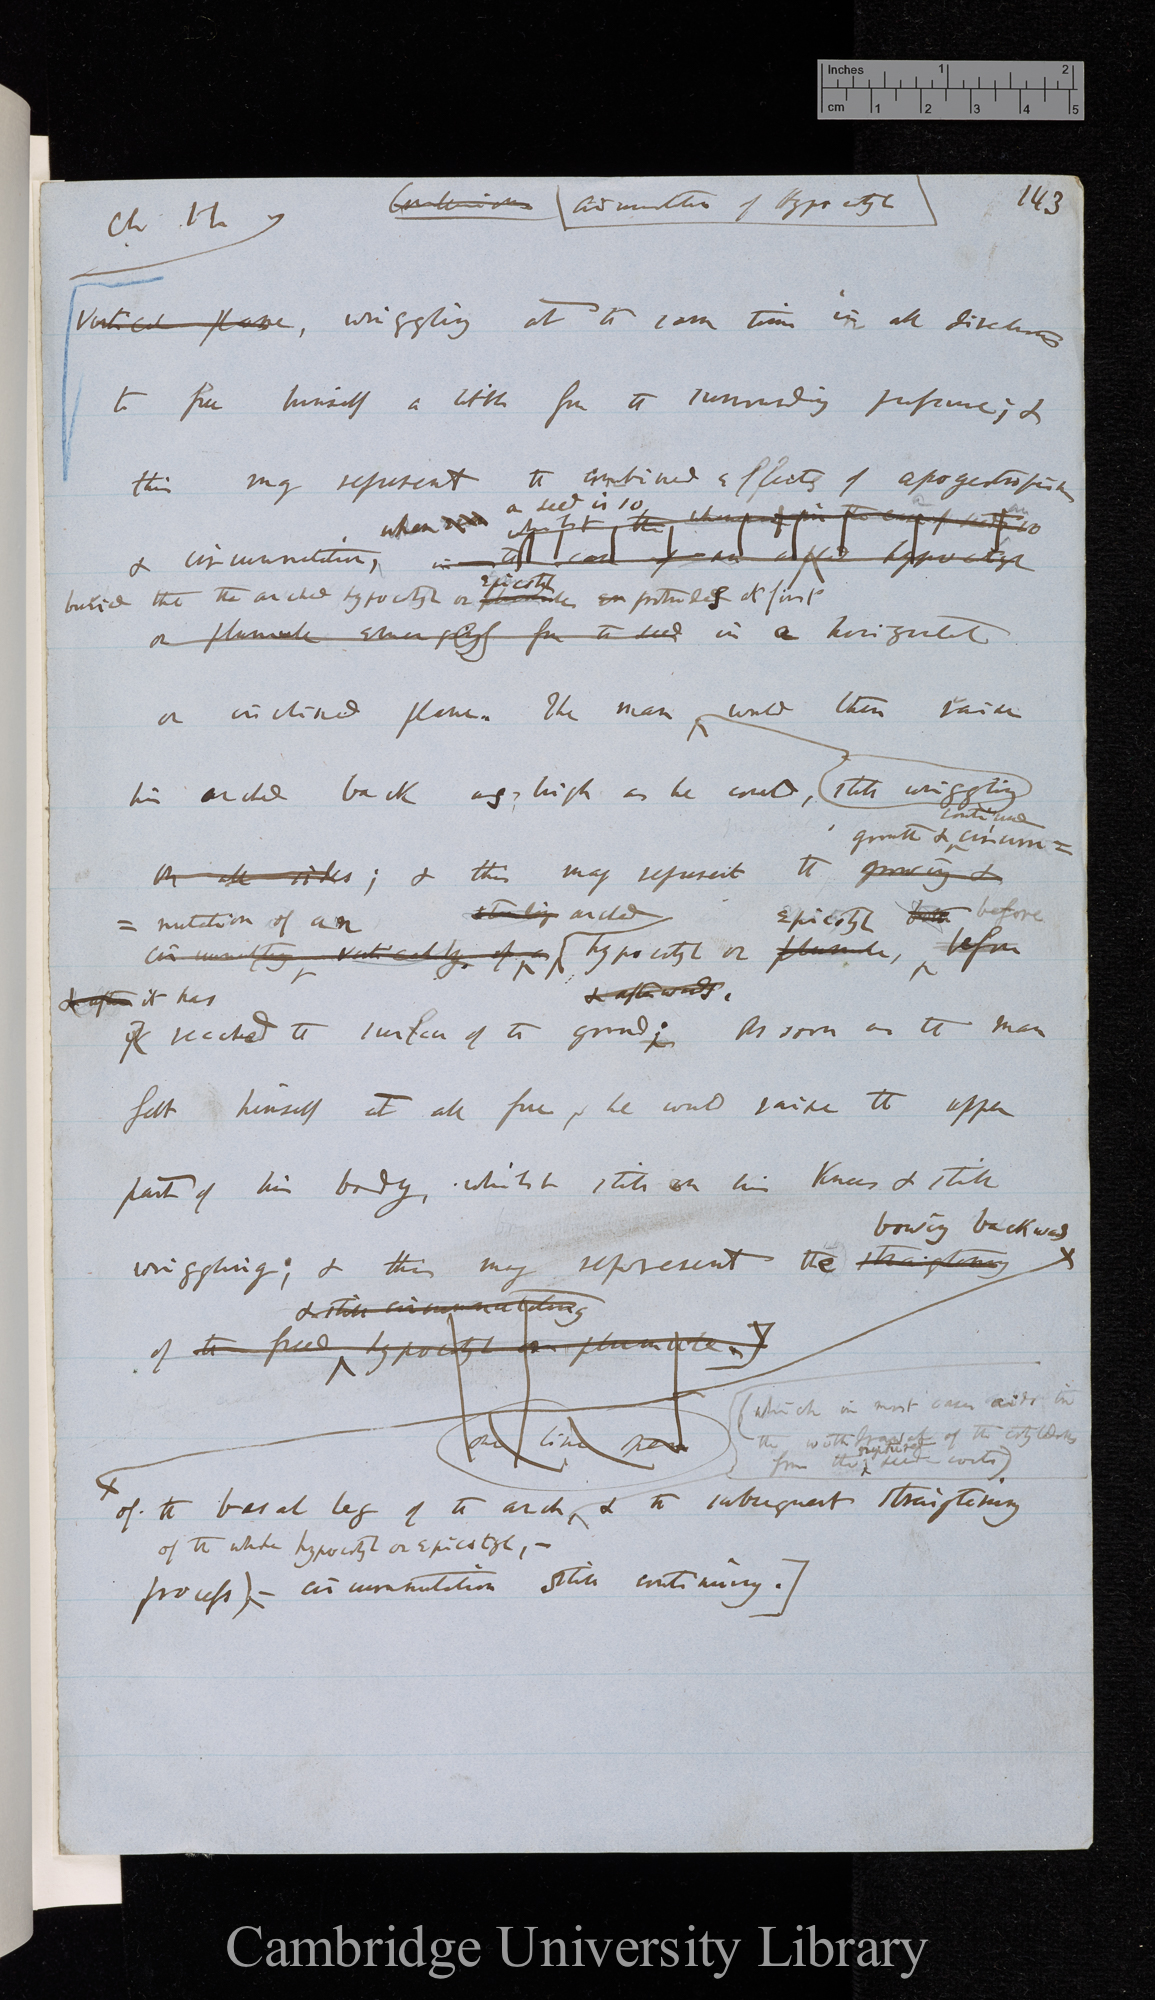 Inches 1 2
cm 1 2 3 4 5
143
Ch
Circumnutation of Hypocotyl
vertical plane, wriggling at the same time in all directions
to free himself a little from the surrounding pressure; &
this may represent the combined effects of apogeotropism
when a seed is so
& circumnutation, in the case of an arched hypocotyl
buried that the arched hypocotyl or epicotyl protrudes at first
or plumule emerging from the seed in a horizontal
or inclined plane. The man would then raise
his arched back as high as he could, still wriggling
growth & continued circum=
on all sides; & this may represent the growing &
= nutation of an arched epicotyl both before
circumnutating vertically of a hypocotyl or plumule, before
& after it has & afterwards.
reached the surface of the ground; As soon as the man
felt himself at all free, he would raise the upper
part of his body, whilst still on his knees & still
bowing backward
wriggling; & this may represent the straightening
& still circumnutating
of the freed hypocotyl or plumule.]
one line space
(which in most cases aids in
the withdrawal of the cotyledons
from the ruptured seed-coats)
of the basal leg of the arch, & the subsequent straightening
of the whole hypocotyl or epicotyl, —
process) — circumnutation still continuing.]
Cambridge University Library